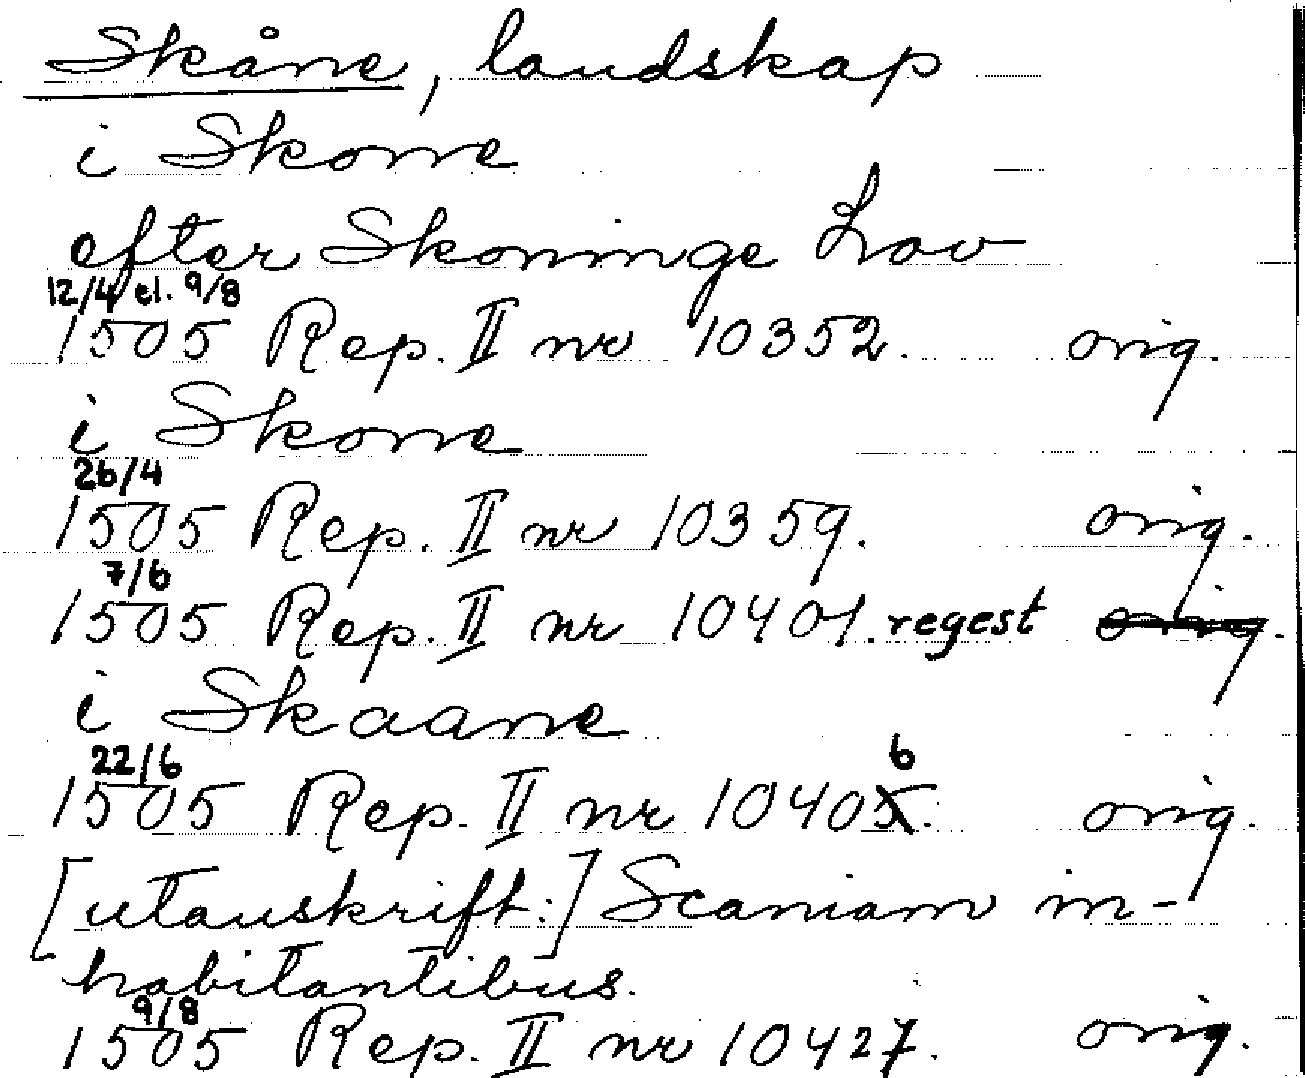 Skåne, landskap
i Skone
efter Skoninge Low
12/4 el. 9/8
1505 Rep. II nr 10352. orig.
i Skone
26/4
1505 Rep. II nr 10359. orig.
7/6
1505 Rep. II nr 10401. regest orig.
i Skaane
22/6
1505 Rep. II nr 10405. 6 orig.
[utanskrift:] Scaniam in-
habitantibus.
9/8
1505 Rep. II nr 10427. orig.